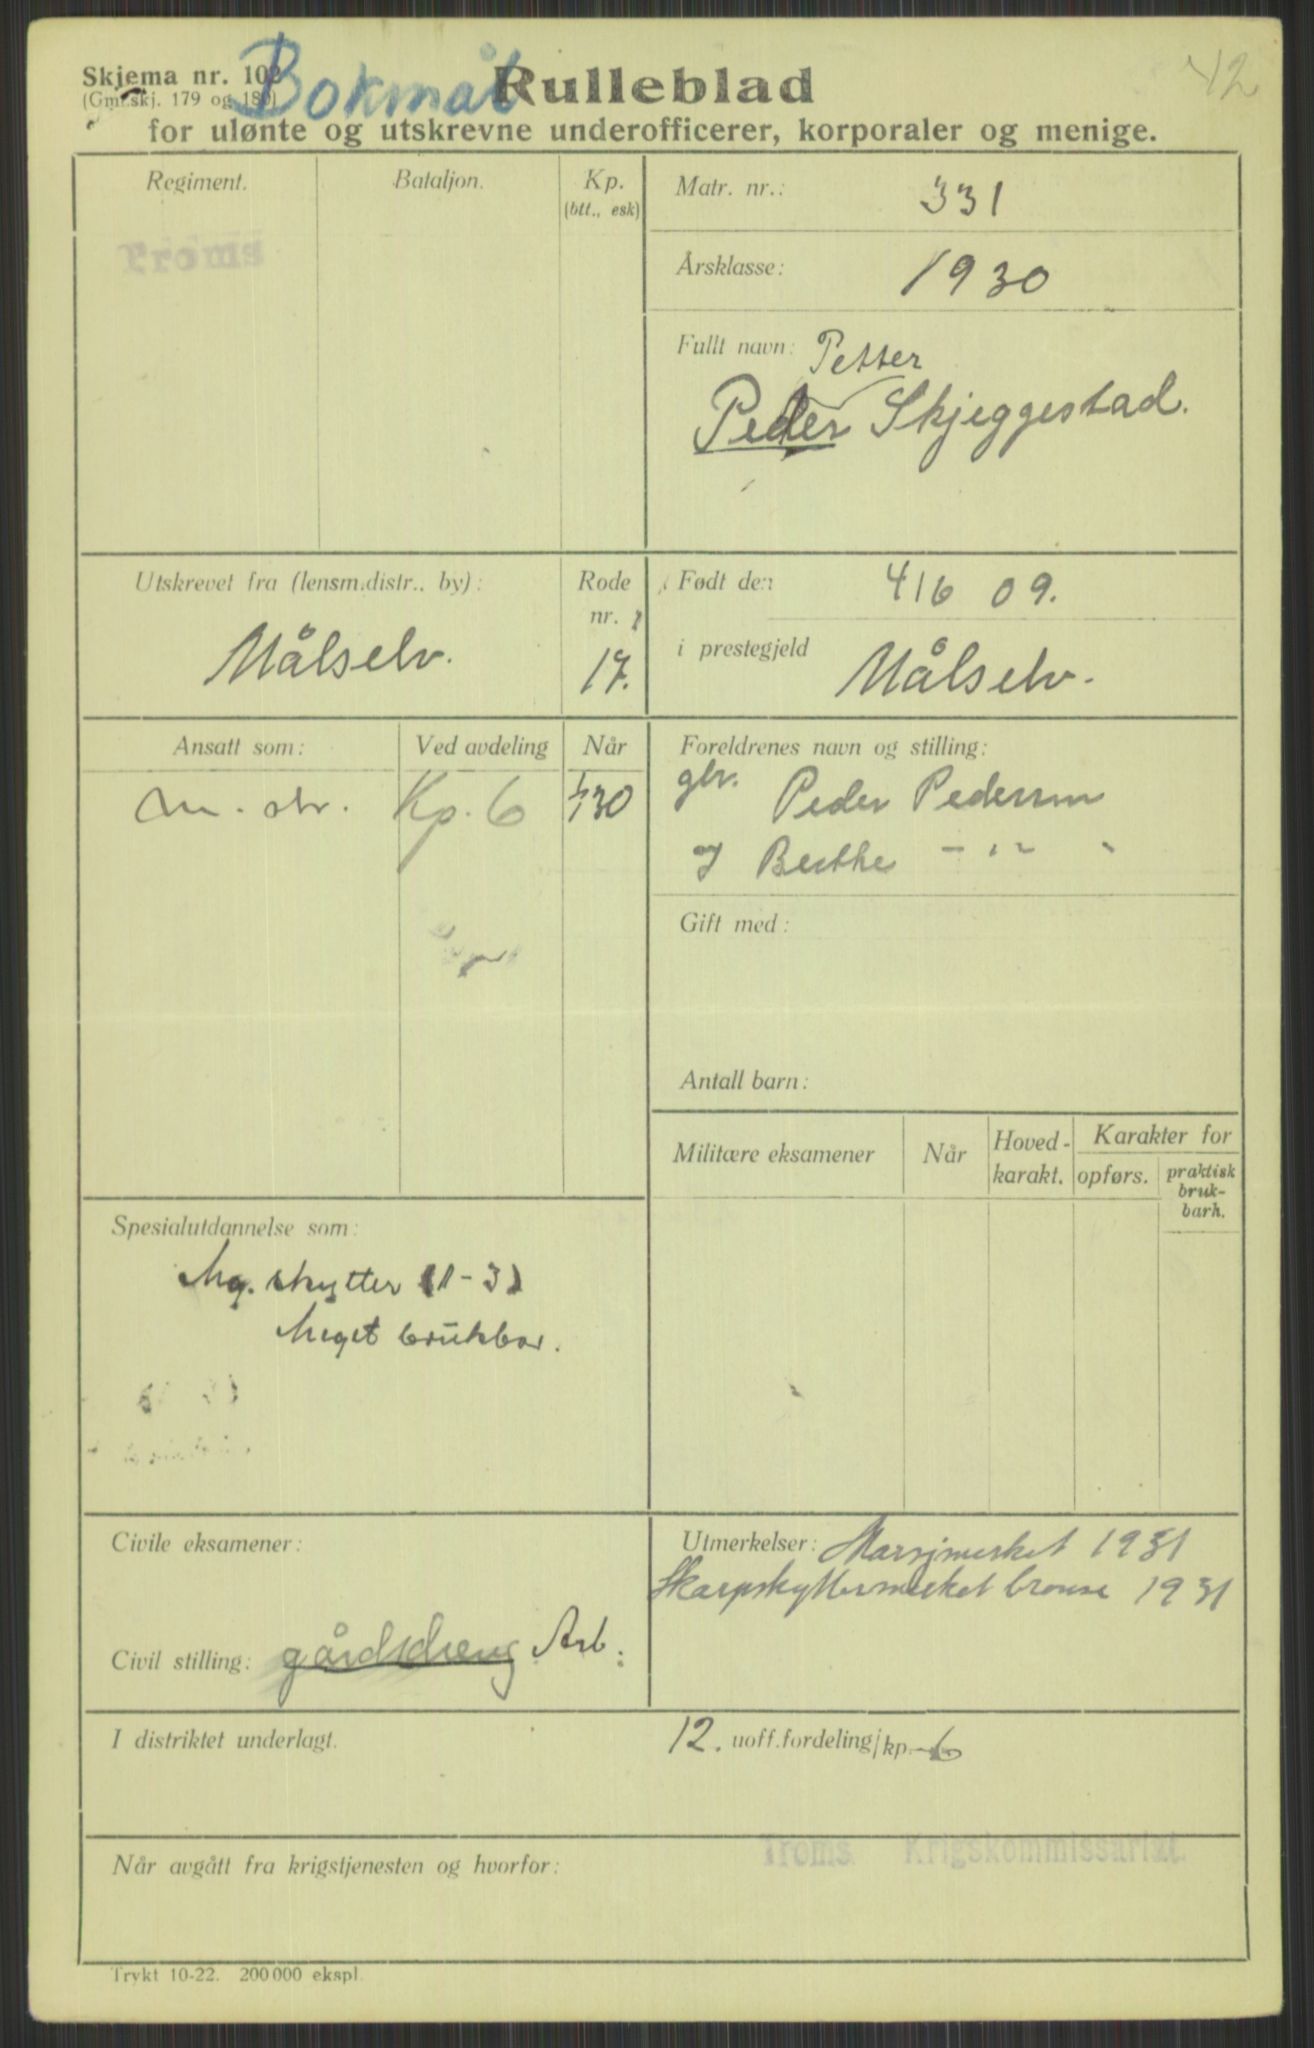 Skjema nr. 102
(Gml.skj. 179 og 180)
Bokmål
Rulleblad
42
for ulønte og utskrevne underofficerer, korporaler og menige.
Regiment.
Bataljon.
Kp.
(btt., esk)
Troms
Matr. nr.: 331
Årsklasse: 1930
Fullt navn: Petter
Peder Skjeggestad.
Utskrevet fra (lensm.distr., by):
Målselv.
Rode
nr.
17.
Født den 4/6 09.
i prestegjeld Målselv.
Ansatt som:
Ved avdeling
Når
Kp. 6
1/1 30
Foreldrenes navn og stilling:
gbr. Peder Pedersen
og Berthe - " -
Gift med:
Antall barn:
Militære eksamener
Når
Hoved-
karakt.
Karakter for
opførs.
praktisk
bruk-
barh.
Spesialutdannelse som:
Mg. skytter (1-3)
Meget brukbar.
Civile eksamener:
Civil stilling: gårdsdreng Arb.
Utmerkelser: Marsjmerket 1931
Skarpskyttermerket bronse 1931
I distriktet underlagt.
12. uoff.fordeling/kp. 6
Når avgått fra krigstjenesten og hvorfor:
Troms Krigskommissariat.
Trykt 10-22. 200 000 ekspl.